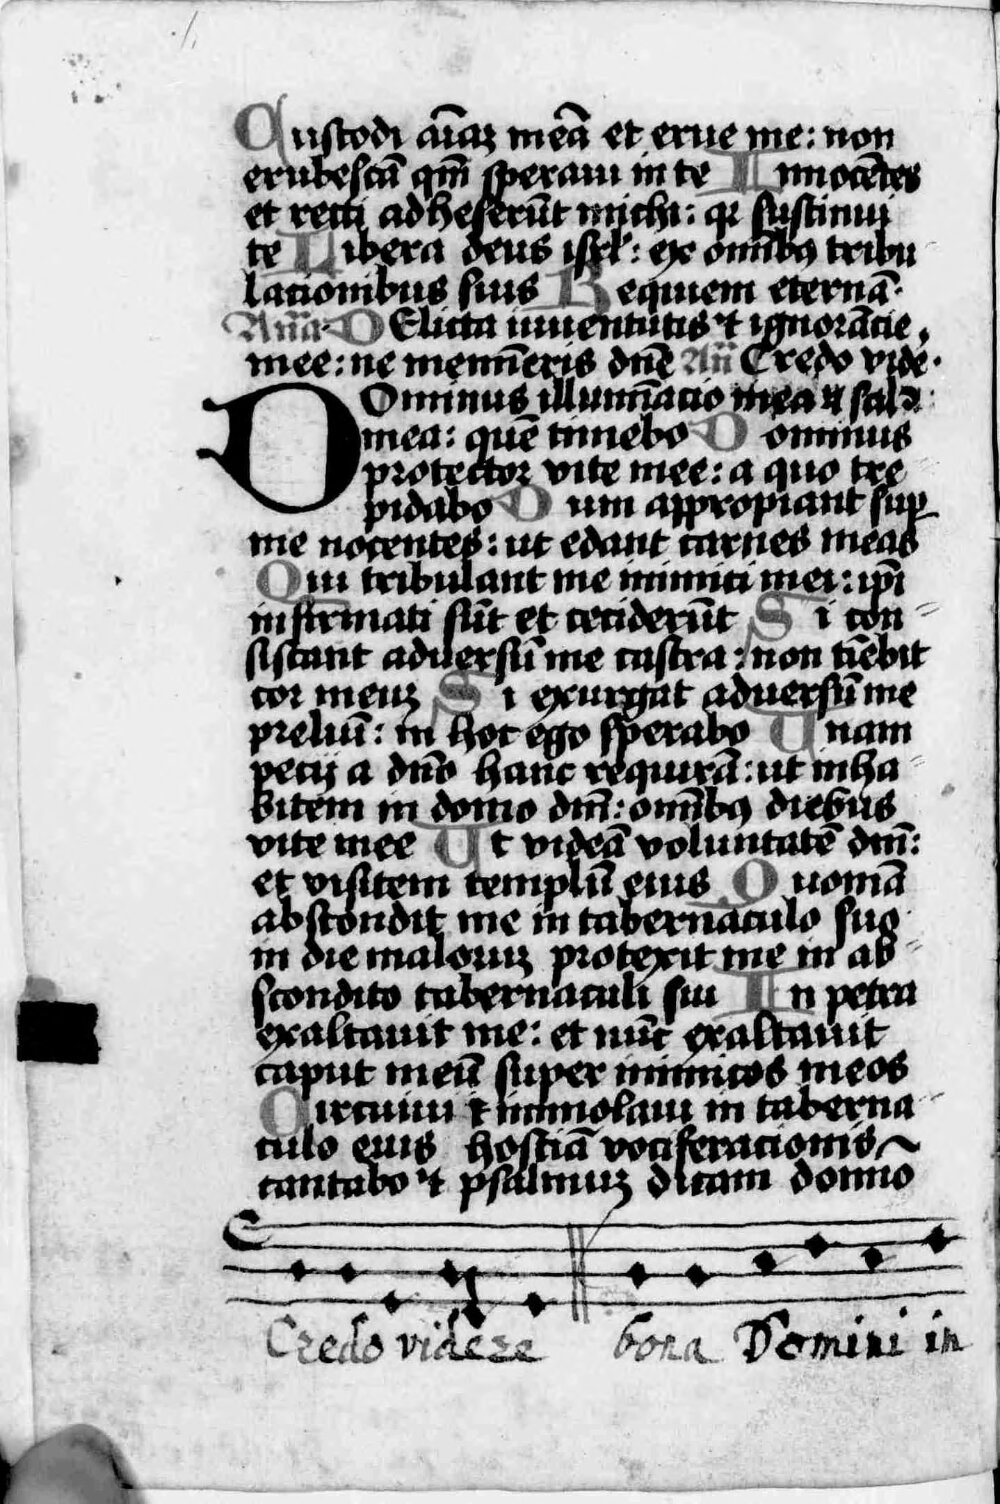 Custodi aīaꝫ meā et erue me: non
erubescā qm̄ speraui in te Innocētes
et recti adheserūt michi: qꝛ sustinui
te Libera deus isrl̓: ex omībꝫ tribu
lacionibus suis Requiem eternā.
An̄a. DElicta iuuentutis ⁊ ignorācie
mee: ne memīeris dn̄e An̄ Credo vide.
DOminus illumīacio mea ⁊ salꝰ
mea: quē timebo Dominus
protector vite mee: a quo tre
pidabo Dum appropiant suꝑ
me nocentes: ut edant carnes meas
Qui tribulant me inimici mei: ip̄i
infirmati sūt et ceciderūt Si con
sistant aduersū me castra: non timēbit
cor meuꝫ Si exurgat aduersū me
preliū: in hoc ego sperabo Unam
pecij a dn̄o hanc requirā: ut inha
bitem in domo dn̄i: omībꝫ diebus
vite mee Ut videā voluntatē dn̄i:
et visitem templū eius Quoniā
abscondit me in tabernaculo suo
in die maloruꝫ protexit me in ab
scondito tabernaculi sui In petra
exaltauit me: et nūc exaltauit
caput meū super inimicos meos
Circuiui ⁊ immolaui in taberna
culo eius hostiā vociferacionis
cantabo ⁊ psalmuꝫ dicam domino
Credo videre bona Domini in